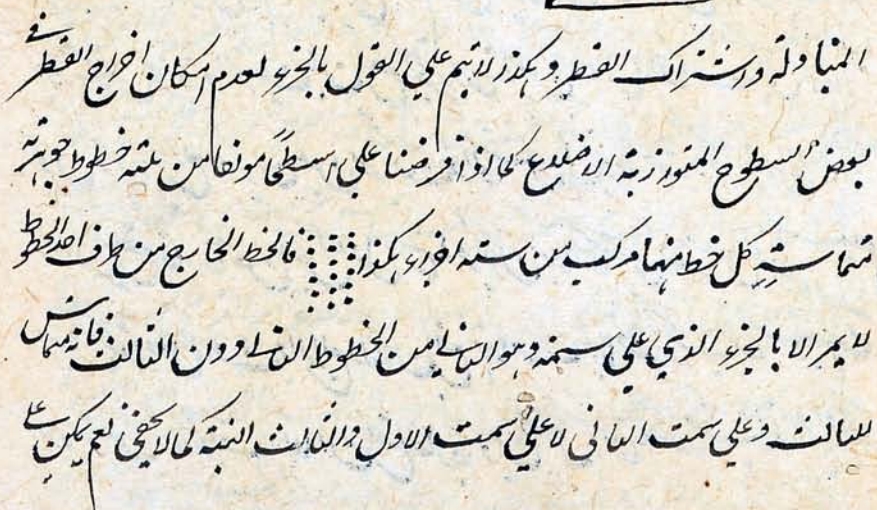 المتبادلة واشتراك القطر وهكذا لا يتم علي القول بالجزء لعدم امكان اخراج القطر في
بعض السطوح المتوازية الاضلاع كما اذا فرضنا علي سطحا مولفا من ثلثة خطوط جوهرية
متماسة كل خط منها مركب من ستة اجزاء هكذا فالخط الخارج من طرف احد الخطوط
لا يمر الا بالجزء الذي علي سمته وهو الثاني من الخطوط الثاني دون الثالث فانه مماس
للثالث وعلي سمت الثاني لا علي سمت الاول والثالث البتة كما لا يخفي نعم يمكن علي